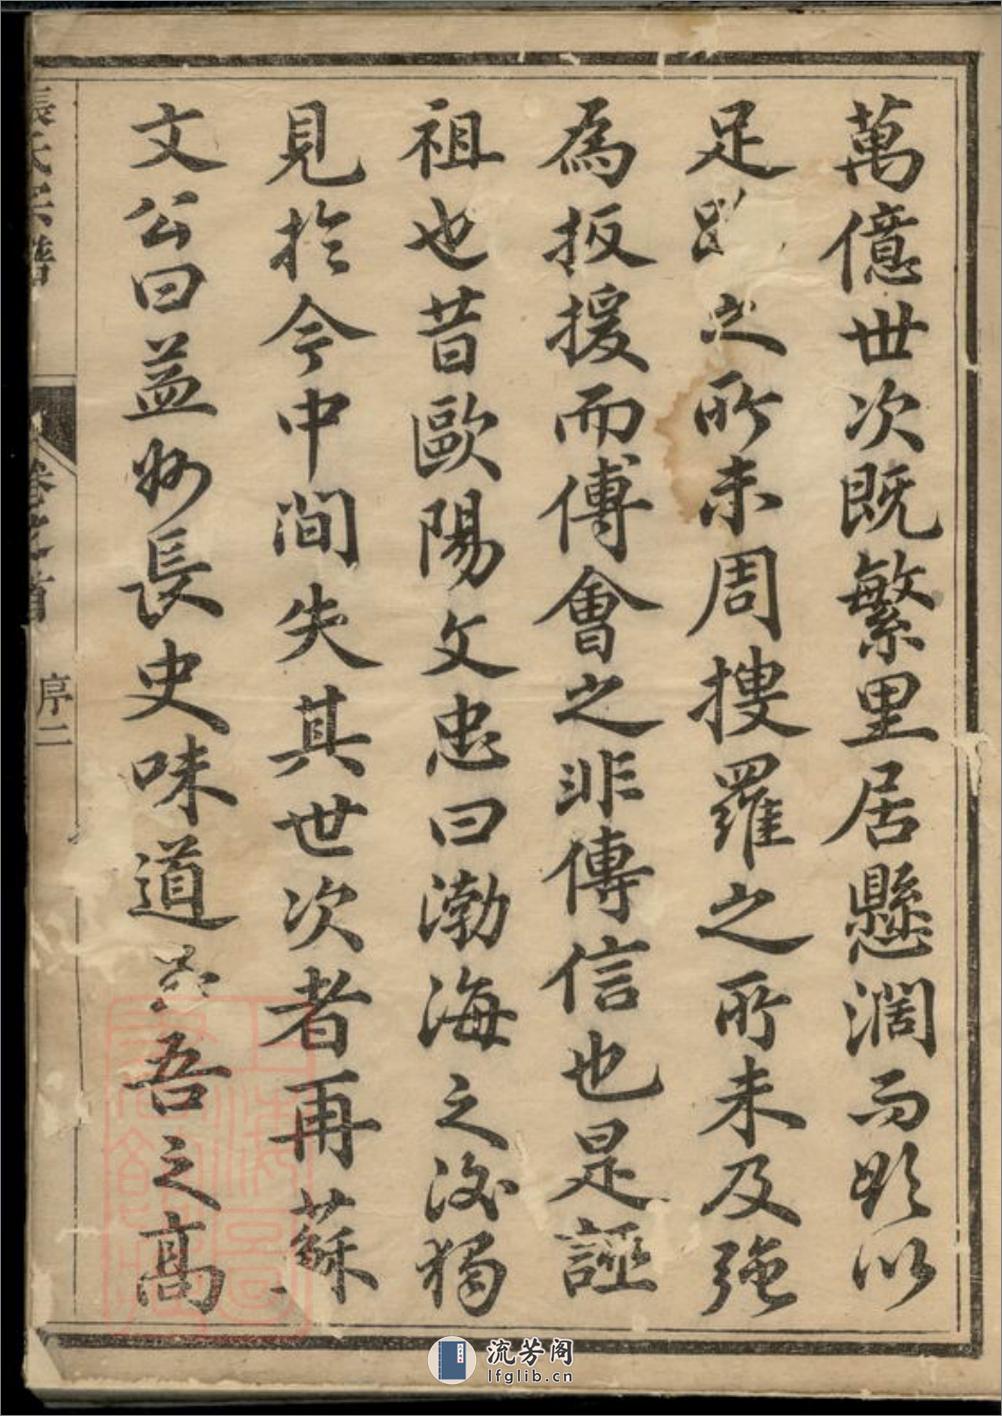 萬億世次既繁里居懸濶而欲以
足之所未周搜羅之所未及強
為扳援而傅會之非傳信也是誣
祖也昔歐陽文忠曰渤海之後獨
見於今中間失其世次者再蘇
文公曰益州長史味道吾之高
張氏宗譜
卷之首
序二
流芳阁
lfglib.cn